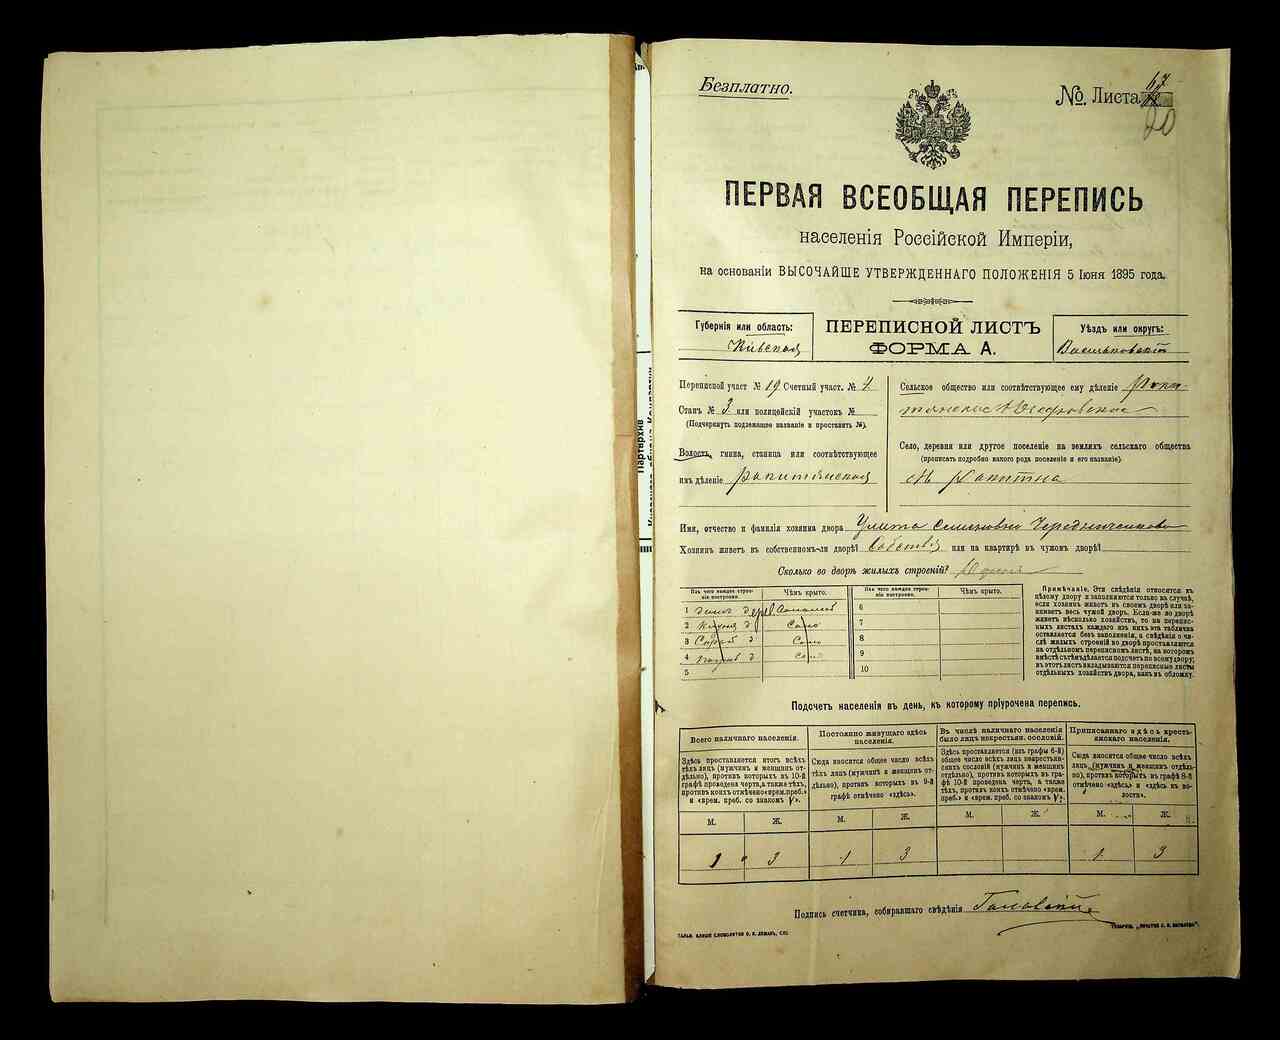 Безплатно.
№ Листа 67
20
ПЕРВАЯ ВСЕОБЩАЯ ПЕРЕПИСЬ
населенія Россійской Имперіи,
на основаніи ВЫСОЧАЙШЕ УТВЕРЖДЕННАГО ПОЛОЖЕНІЯ 5 Іюня 1895 года.
Губернія или область:
Кіевская
ПЕРЕПИСНОЙ ЛИСТЪ
ФОРМА А.
Уѣздъ или округъ:
Васильковскій
Переписной участ № 19 Счетный участ. № 4
Станъ № 3 или полицейскій участокъ №
(Подчеркнуть подлежащее названіе и проставить №).
Волость, гмина, станица или соотвѣтствующее
имъ дѣленіе
Сельское общество или соотвѣтствующее ему дѣленіе
Село, деревня или другое поселеніе на земляхъ сельскаго общества
(прописать подробно какого рода поселеніе и его названіе).
Имя, отчество и фамилія хозяина двора Улита Семеновна Чередниченкова
Хозяинъ живетъ въ собственномъ-ли дворѣ? или на квартирѣ въ чужомъ дворѣ?
Сколько во дворѣ жилыхъ строеній?
Изъ чего каждое строеніе построено.
Чѣмъ крыто.
Изъ чего каждое строеніе построено.
Чѣмъ крыто.
1
2
3
4
5
6
7
8
9
10
Примѣчаніе. Эти свѣдѣнія относятся къ
цѣлому двору и заполняются только въ случаѣ,
если хозяинъ живетъ въ своемъ дворѣ или занимаетъ
весь чужой дворъ. Если-же во дворѣ
живетъ нѣсколько хозяйствъ, то на переписныхъ
листахъ каждаго изъ нихъ эта табличка
оставляется безъ заполненія, а свѣдѣнія о числѣ
жилыхъ строеній во дворѣ проставляются
на отдѣльномъ переписномъ листѣ, на которомъ
вмѣстѣ съ тѣмъ дѣлается подсчетъ по всему двору;
въ этотъ листъ вкладываются переписные листы
отдѣльныхъ хозяйствъ двора, какъ въ обложку.
Подсчетъ населенія въ день, къ которому пріурочена перепись.
Всего наличнаго населенія.
Постоянно живущаго здѣсь населенія.
Въ числѣ наличнаго населенія было лицъ некрестьян. сословій.
Приписаннаго здѣсь крестьянскаго населенія.
Здѣсь проставляется итогъ всѣхъ
тѣхъ лицъ (мужчинъ и женщинъ отдѣльно),
противъ которыхъ въ 10-й
графѣ проведена черта, а также тѣхъ,
противъ коихъ отмѣчено «врем. преб.»
и «врем. преб. со знакомъ V».
Сюда вносится общее число всѣхъ
тѣхъ лицъ (мужчинъ и женщинъ отдѣльно),
противъ которыхъ въ 9-й
графѣ отмѣчено «здѣсь».
Здѣсь проставляется (изъ графы 6-й)
общее число всѣхъ лицъ некрестьянскихъ
сословій (мужчинъ и женщинъ
отдѣльно), противъ которыхъ въ графѣ
10-й проведена черта, а также
тѣхъ, противъ коихъ отмѣчено «врем.
преб.» и «врем. преб. со знакомъ V».
Сюда вносится общее число всѣхъ
лицъ (мужчинъ и женщинъ отдѣльно),
противъ которыхъ въ графѣ 8-й
отмѣчено «здѣсь» и «здѣсь въ волости».
М. Ж. М. Ж. М. Ж. М. Ж.
1 3 1 3 1 3
Подпись счетчика, собиравшаго свѣдѣнія